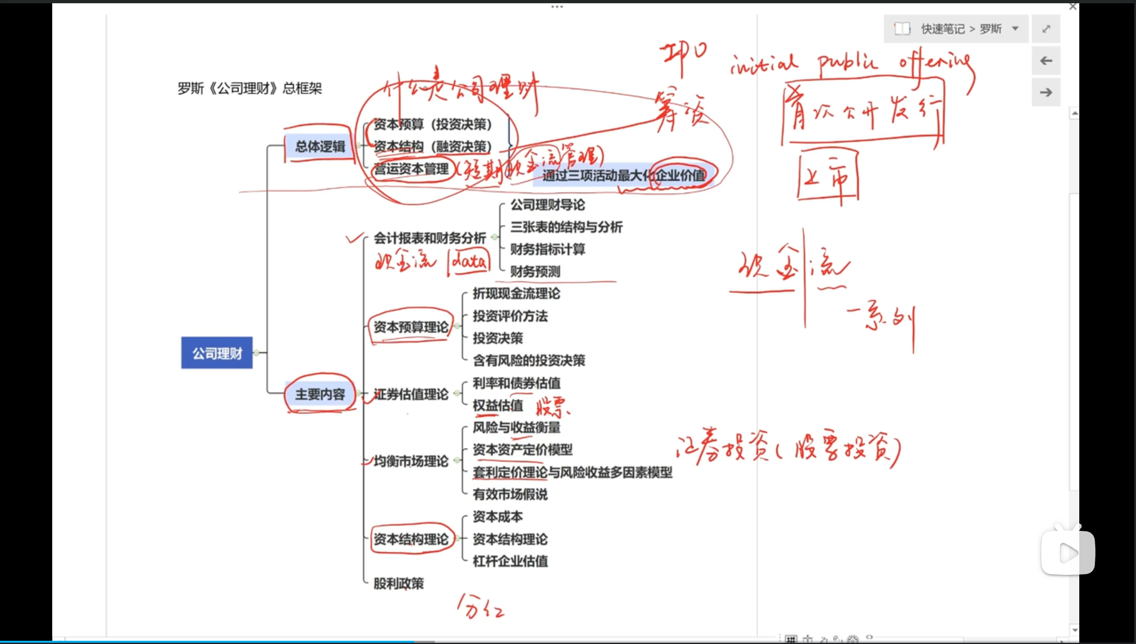 快速笔记 > 罗斯
IPO initial public offering
罗斯《公司理财》总框架
什么是公司理财
筹资
首次公开发行
上市
资本预算（投资决策）
总体逻辑
资本结构（融资决策）
营运资本管理(短期现金流管理)
通过三项活动最大化企业价值
公司理财导论
三张表的结构与分析
会计报表和财务分析
现金流 data
财务指标计算
财务预测
现金流
一系列
折现现金流理论
投资评价方法
资本预算理论
投资决策
含有风险的投资决策
公司理财
主要内容
证券估值理论
利率和债券估值
权益估值 股票
风险与收益衡量
资本资产定价模型
证券投资(股票投资)
均衡市场理论
套利定价理论与风险收益多因素模型
有效市场假说
资本成本
资本结构理论
资本结构理论
杠杆企业估值
股利政策
分红